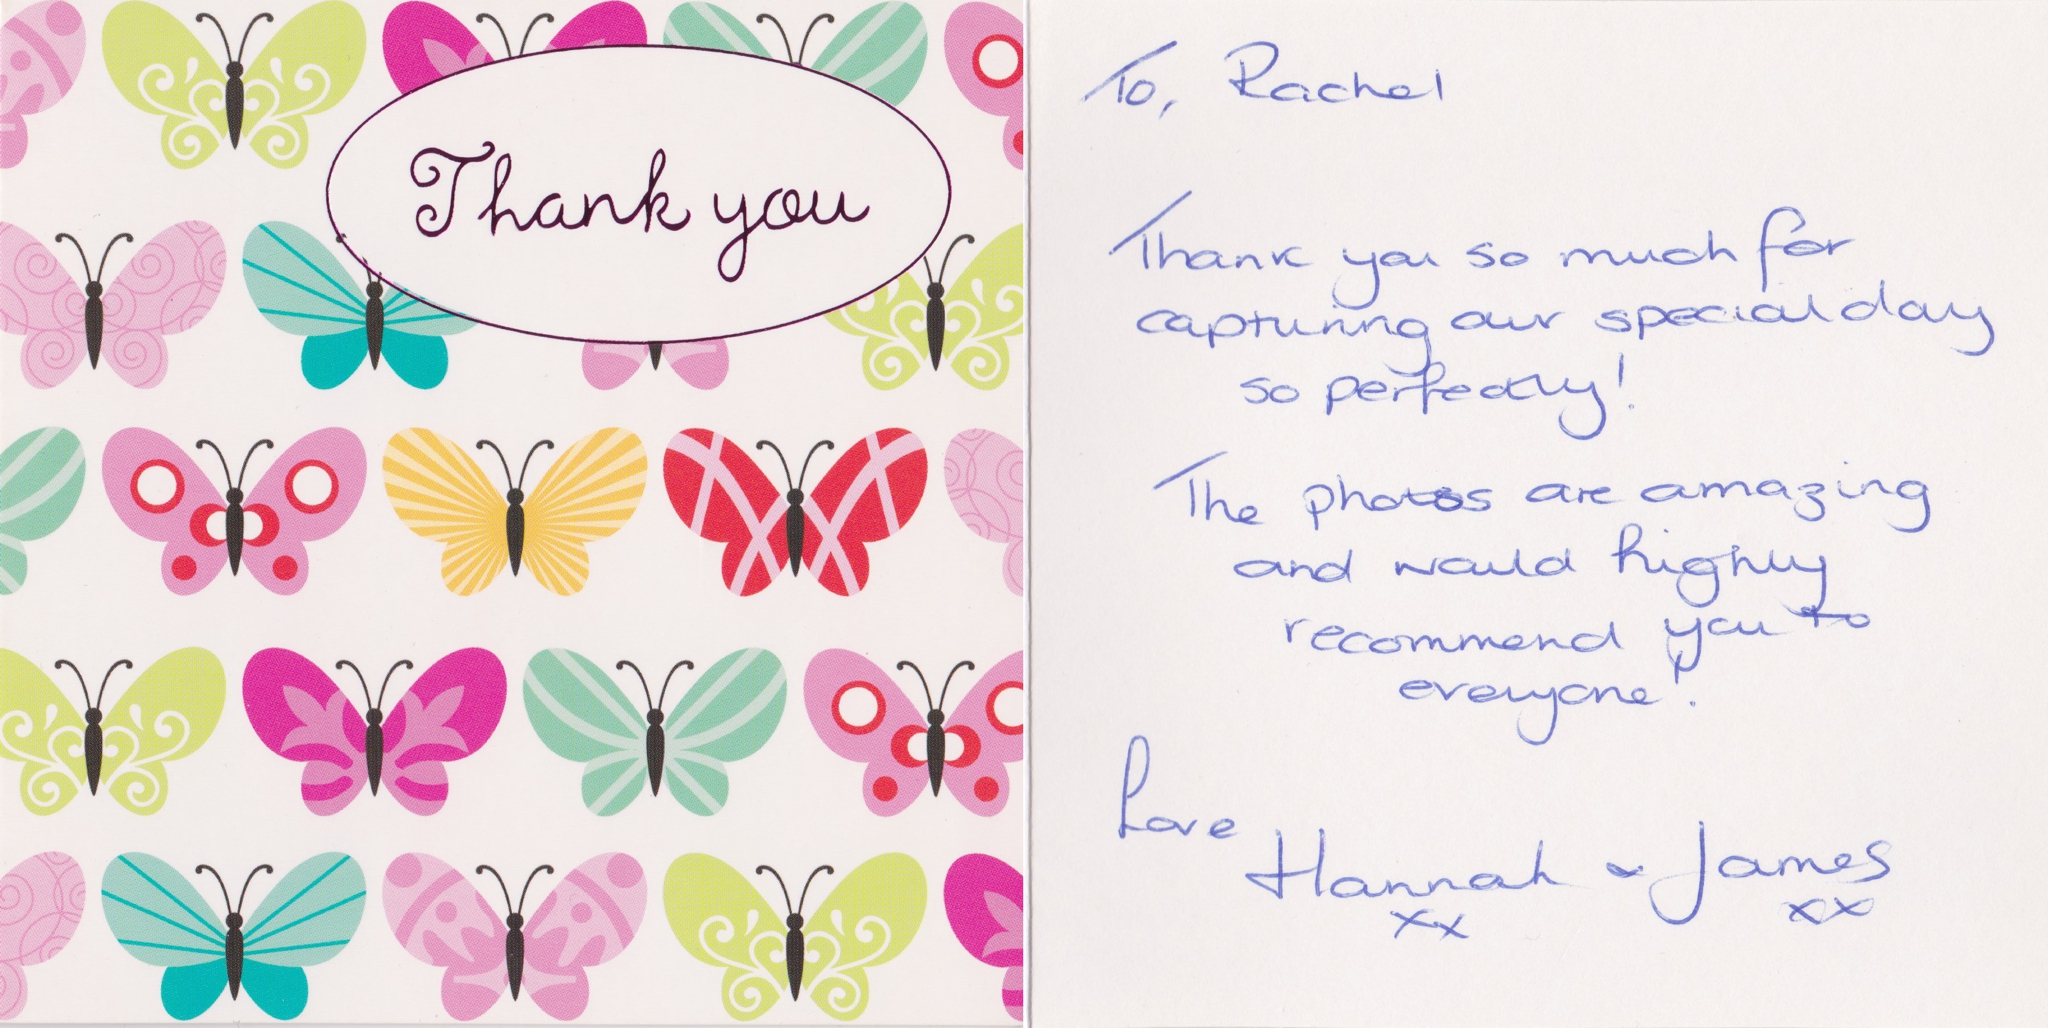 Thank you
To, Rachel
Thank you so much for
capturing our special day
so perfectly!
The photos are amazing
and would highly
recommend you to
everyone!
Love
Hannah & James
xx xx